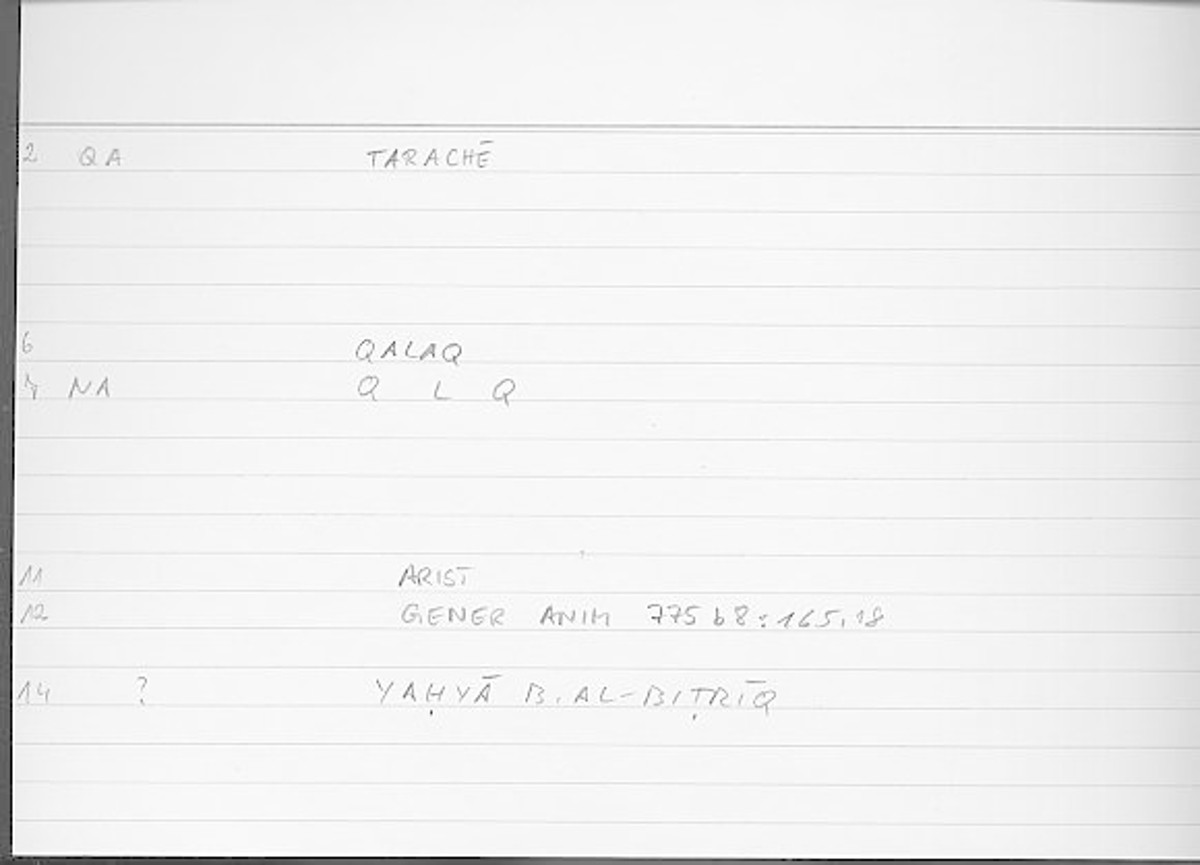 2 QA TARACHĒ
6 QALAQ
7 NA Q L Q
11 ARIST
12 GENER ANIM 775 b 8 : 165,18
14 ? YAḤYĀ B. AL-BIṬRĪQ